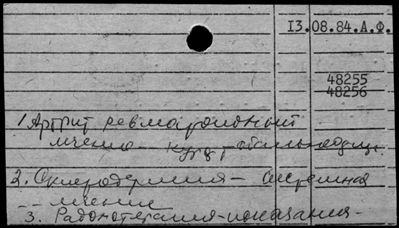 13.08.84.А.Ф.
48255
48256
1 Артрит ревматоидный
лечение - курорт
2. Склеродермия - системная
-- лечение
3. Радонотерапия - показания -